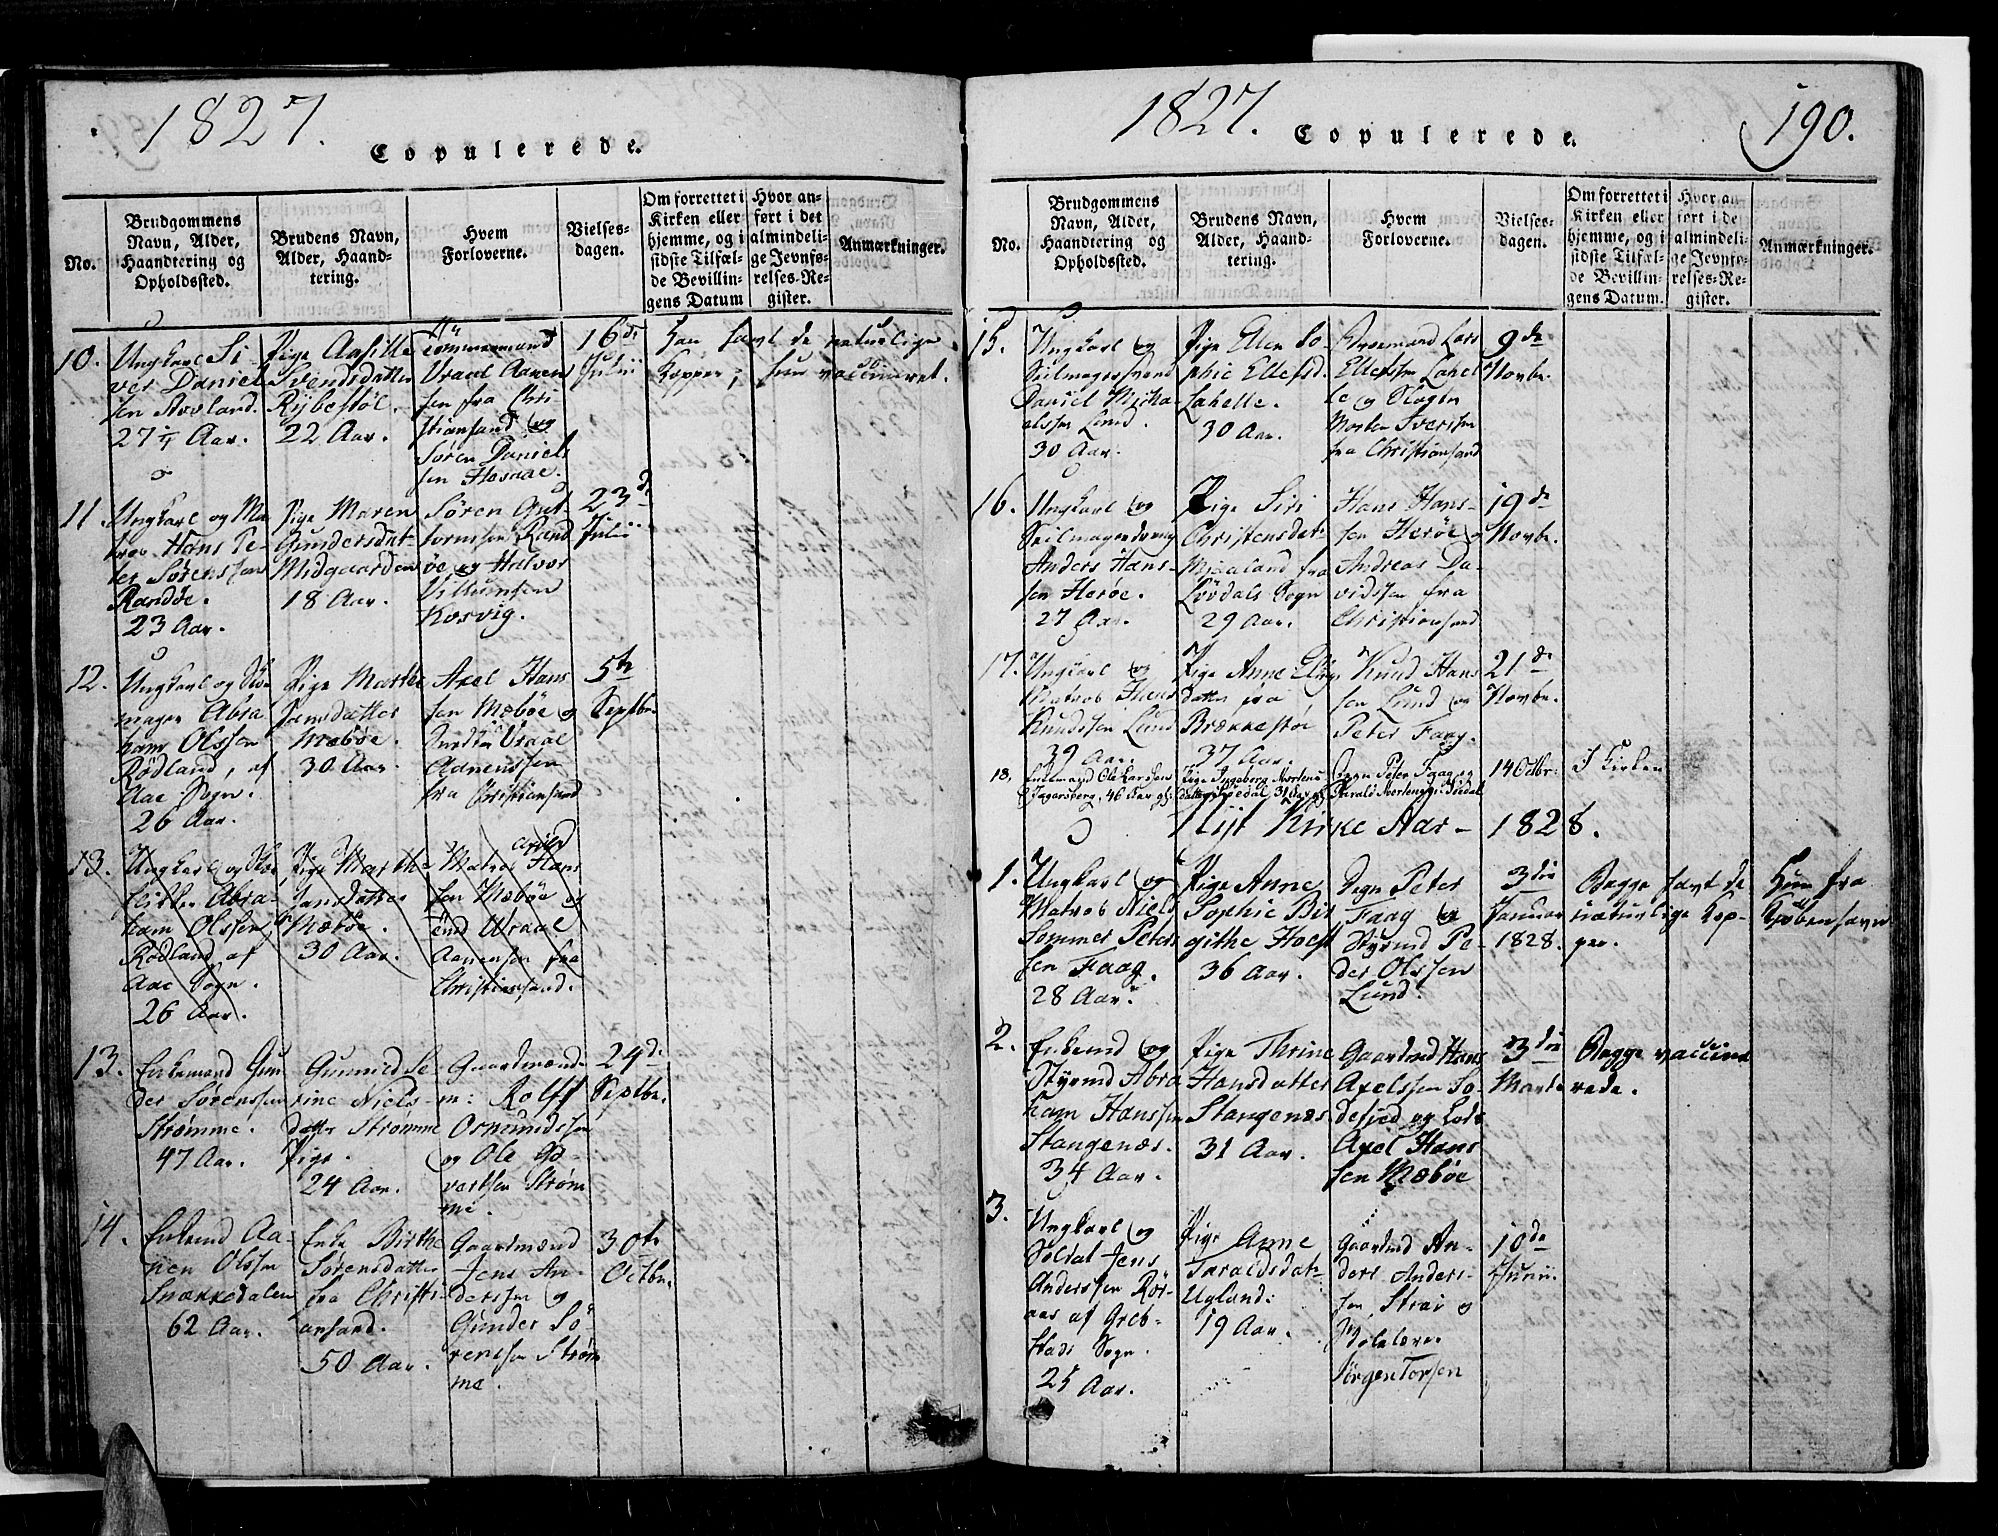 1827.
Copulerede.
No.
Brudgommens
Navn, Alder,
Haandtering og
Opholdssted.
Brudens Navn,
Alder, Haand-
tering.
Hvem
Forloverne.
Vielses-
dagen.
Om forrettet i
Kirken eller
hjemme, og i
sidste Tilfæl-
de Bevillin-
gens Datum
Hvor an-
ført i det
almindeli-
ge Jevnfø-
relses-Re-
gister.
Anmærkninger.
10.
Ungkarl Si-
ver Daniel
sen Aavland.
27 ¼ Aar.
Pige Aasille
Svendsdatter
Rybestøl.
22 Aar.
Tömmermand
Vraal Aanen
sen fra Chri
stiansand og
Søren Daniel
sen Hosaae.
16de
Julii
Han havt de naturlige
Kopper; hun vaccineret.
11.
Ungkarl og Ma
tros Hans Pe-
ter Sørenssen
Randøe.
23 Aar.
Pige Maren
Gundersdat-
Midgaarden
18 Aar.
Søren Gut
tormsen Rand
öe og Halvor
Villumsen
Korsvig.
23de
Julii
12.
Ungkarl og Sko
mager Abra
ham Olssen
Rödland, af
Aae Sogn.
26 Aar.
Pige Marthe
Jensdatter
Mæböe.
30 Aar.
Axel Hans
sen Mæböe og
Vraal
Aanenssen
fra Christiansand
5te
Septbr.
13.
Ungkarl og
Abra-
ham Olssen
Rödland af
Aae Sogn.
26 Aar.
Pige Marthe
Jensdatter
Mæböe.
30 Aar.
Matros Axel Hans
sen Mæböe og
Wraal
Aanensen fra
Christiansand.
13.
Enkemand Gun
der Sørenssen
Strømme.
47 Aar.
Gunnild Se-
rine Niels-
datter Strømme
Pige.
24 Aar.
Gaardmænde-
ne: Rolff
Osmundssen
og Ole Go-
vertsen Strøm
me.
24de
Septbr.
14.
Enkemd Aa-
nen Olssen
Snækkedalen
62 Aar.
Enke Birthe
Sörensdatter
fra Christi-
ansand.
50 Aar.
Gaardmænd
Jens An-
derssen og
Gunder Sö-
rensen Strøm
me.
30te
Octbr.
1827.
Copulerede.
190.
No.
Brudgommens
Navn, Alder,
Haandtering og
Opholdssted.
Brudens Navn,
Alder, Haand-
tering.
Hvem
Forloverne.
Vielses-
dagen.
Om forrettet i
Kirken eller
hjemme, og i
sidste Tilfæl-
de Bevillin-
gens Datum.
Hvor an
ført i de
almindeli-
ge Jevnfø-
relses-Re-
gister.
Anmærkninger.
15.
Ungkarl og
Seilmagersvend
Daniel Micha
elssen Lund.
30 Aar.
Pige Ellen So
phie Ellefsd.
Lahelle.
30 Aar.
Lars
Ellefsen Lahel
le og
Morten Iversen
fra Christiansand
9de
Novbr.
16.
Ungkarl og
Seilmagerdreng
Anders Hans-
sen Herøe.
27 Aar.
Pige Siri
Christensdat-
Mjaaland fra
Lövdals Sogn
29 Aar.
Hans Hans-
sen Herøe og
Andreas Da-
vidssen fra
Christiansand
19de
Novbr.
17.
Ungkarl og
Matros Jens
Knudssen Lund
39 Aar.
Pige Anne
datter fra
Brækkestöe
37 Aar.
Knud Hans
sen Lund og
Peter Faag.
21de
Novbr.
18.
Enkemand Ole Larssen
Jægersberg, 46 Aar gl:
Pige Ingeberg
datter 31 Aar gl
Degn Peter Faag og
Harald
14 Odbr:
I Kirken
Nyt Kirke Aar - 1828.
1.
Ungkarl og
Matros Niels
Sommer Peter
sen Faag.
28 Aar.
Pige Anne
Sophie Bir
githe Hoest
36 Aar.
Degn Peter
Faag og
Styrmd Pe-
der Olssen
Lund.
3die
Januar
1828.
Begge havt de
naturlige Kop-
per.
Hun fra
Kjøbenhavn
2.
Enkemd og
Styrmd Abra
ham Hanssen
Stangenæs.
34 Aar.
Pige Thrine
Hansdatter
Stangenæs
31 Aar.
Gaardmd Hans
Axelssen So-
defjed og Lods
Axel Hans
sen Mæböe
3die
Marts
Begge vaccine
rede.
3.
Ungkarl og
Soldat Jens
Anderssen Rös-
aas af Greb-
stads Sogn.
25 Aar.
Pige Anne
Taraldsdat-
Ugland.
19 Aar.
Gaardmd An-
ders Anders-
sen Strai og
Skolelærer
Jörgen Torsen
10de
Junii